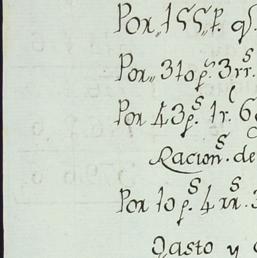 Por,,155,,p. q
Por,, 310 ps. 3 rrs.
Por 43 ps. 1 r. 6
Racions. de
Por 10 ps. 4 rrs. 3
Gasto y